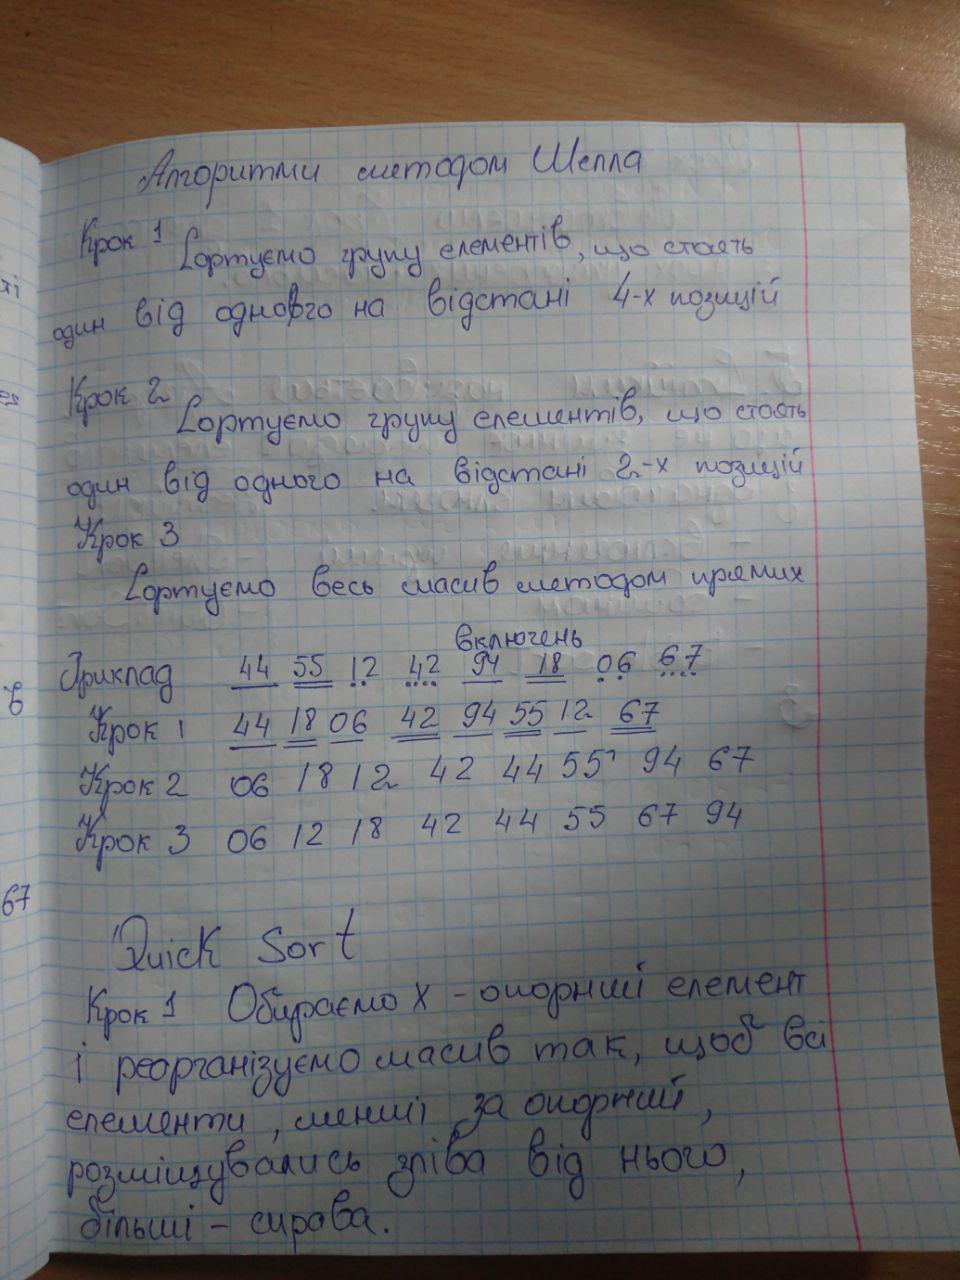 Алгоритми методом Шелла
Крок 1 Сортуємо групу елементів, що стоять
один від одного на відстані 4-х позицій
Крок 2 Сортуємо групу елементів, що стоять
один від одного на відстані 2-х позицій
Крок 3
Сортуємо весь масив методом прямих
включень
Приклад 44 55 12 42 94 18 06 67
Крок 1 44 18 06 42 94 55 12 67
Крок 2 06 18 12 42 44 55 94 67
Крок 3 06 12 18 42 44 55 67 94
Quick Sort
Крок 1 Обираємо x - опорний елемент
і реорганізуємо масив так, щоб всі
елементи, менші за опорний,
розміщувались зліва від нього,
більші - справа.
67